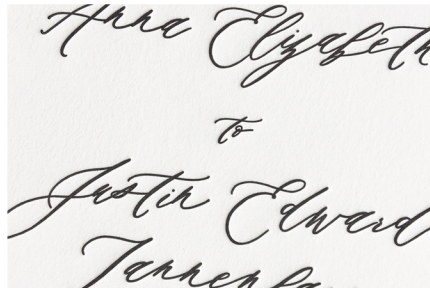 Anna Elizabeth
to
Justin Edward